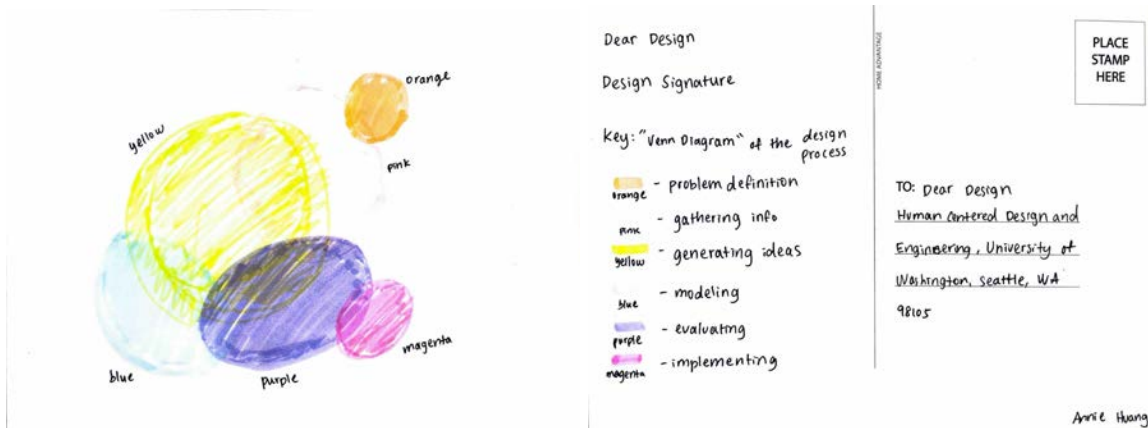 orange
yellow
pink
blue
purple
magenta
Dear Design
Design Signature
Key: "Venn Diagram" of the design process
orange - problem definition
pink - gathering info
yellow - generating ideas
blue - modeling
purple - evaluating
magenta - implementing
HOME ADVANTAGE
PLACE
STAMP
HERE
TO: Dear Design
Human Centered Design and
Engineering, University of
Washington, Seattle, WA
98105
Annie Huang